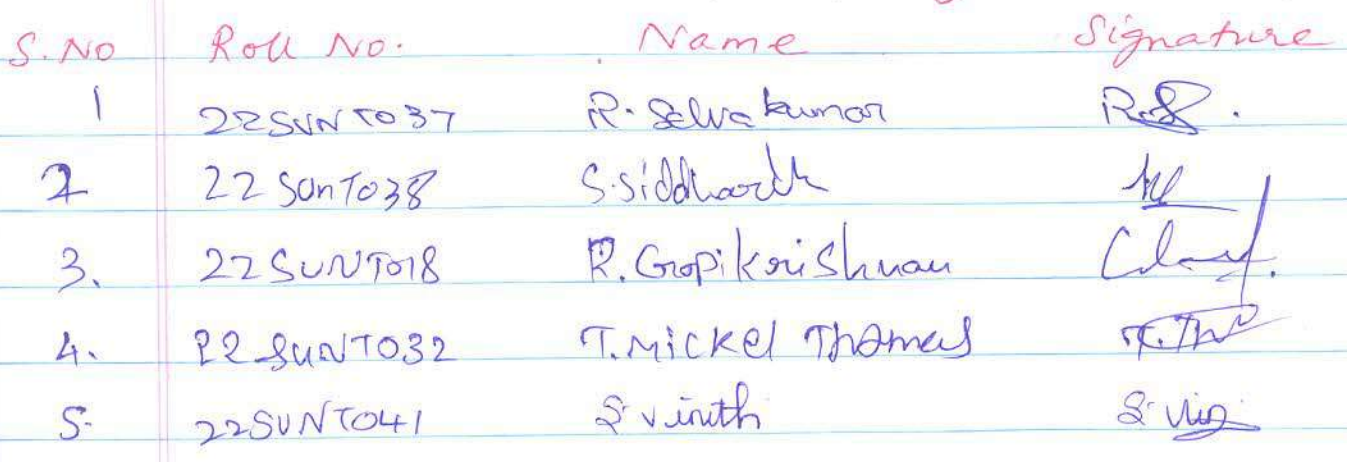 S.NO Roll No. Name Signature
1 22SUNT037 R. Selvakumar R.S.
2 22SUNT038 S.Siddharth
3. 22SUNT018 R.Gopikrishnan
4. 22SUNT032 T.Mickel Thomas T.Tho
5. 22SUNT041 S.vinith S.vig